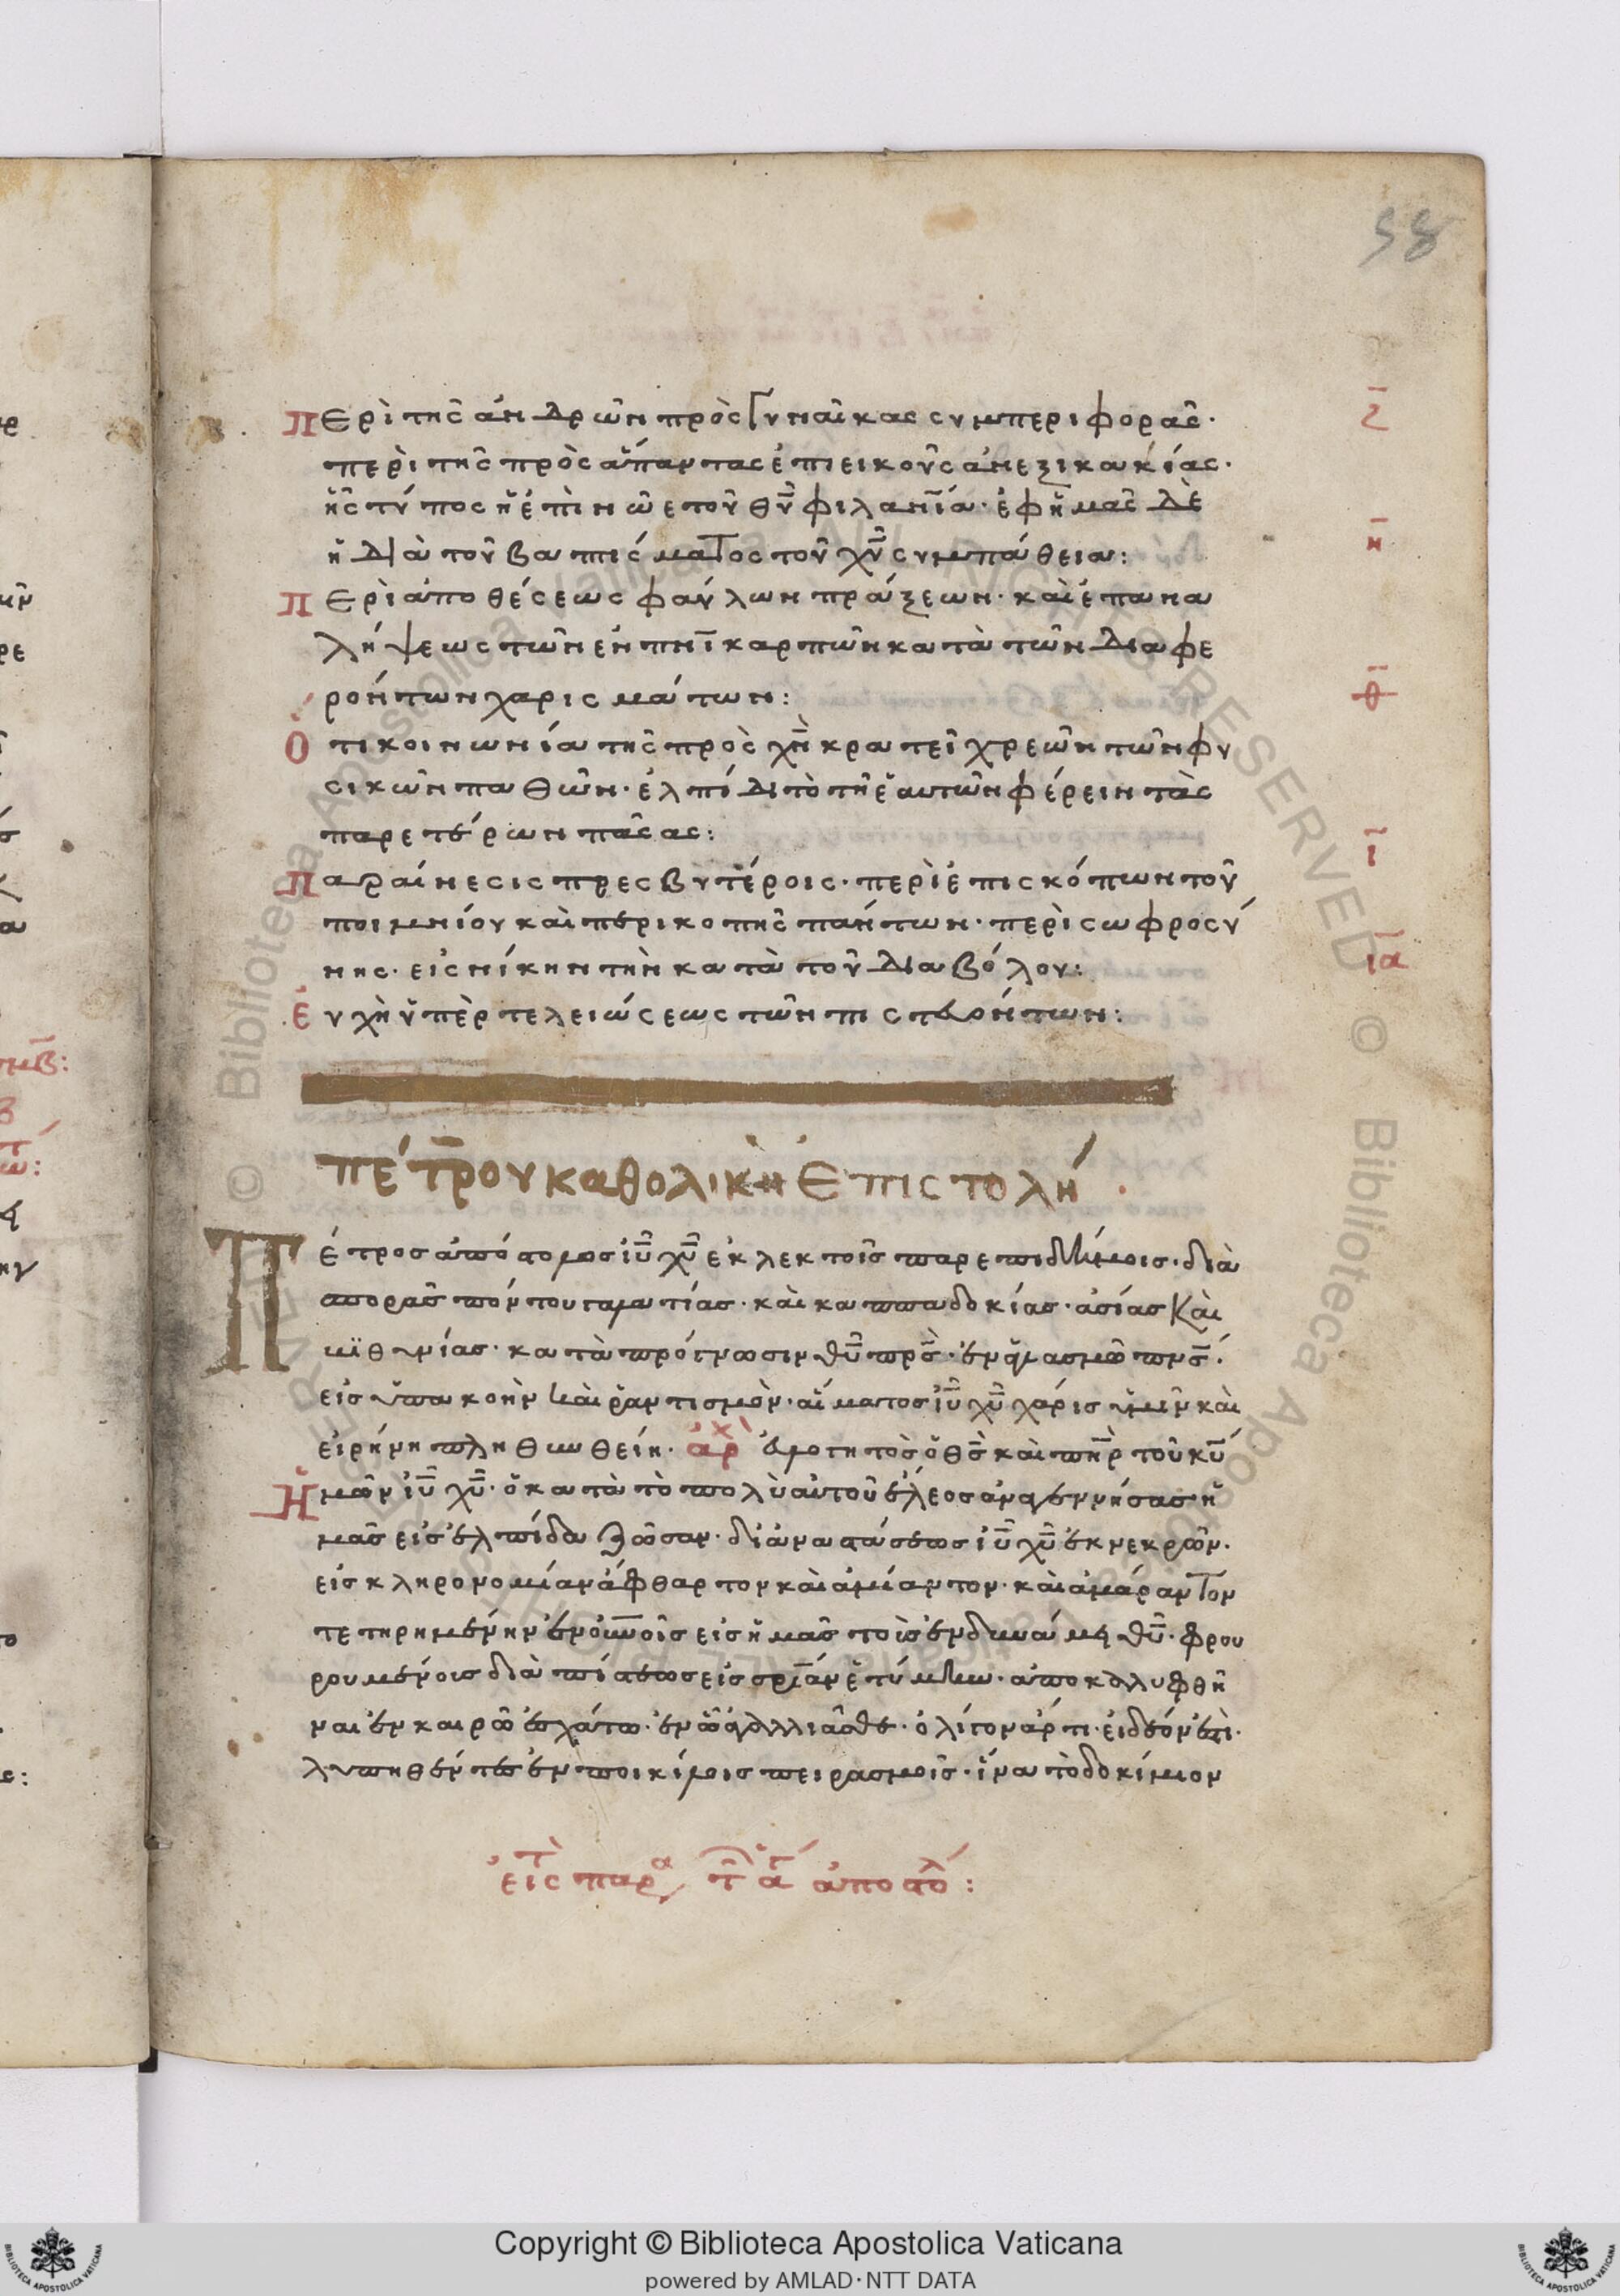 58
Περὶ τῆς ἀνδρῶν πρὸς γυναῖκας συμπεριφορᾶς·
περὶ τῆς πρὸς ἅπαντας ἐπιεικοῦς ἀνεξικακίας·
ἧς τύπος ἡ ἐπὶ νῶε τοῦ θῦ φιλανία· ἐφ ἡμᾶς δὲ
ἡ διὰ τοῦ βαπτίσματος τοῦ χῦ συμπάθεια:
Περὶ ἀποθέσεως φαύλων πράξεων· καὶ ἐπανα
λήψεως τῶν ἐν πνι καρπῶν κατὰ τῶν διαφε
ρόντων χαρισμάτων:
Ὅτι κοινωνία τῆς πρὸς χν κρατεῖ χρεῶν τῶν φυ
σικῶν παθῶν· ἐλπίδι τὸ τῆ ἑαυτῶν φέρειν τὰς
παρ ετέρων πάσας:
Παραίνεσις πρεσβυτέροις· περὶ ἐπισκόπων τοῦ
ποιμνίου καὶ περικοπῆς πάντων· περὶ σωφροσύ
νης· εἰς νίκην τὴν κατὰ τοῦ διαβόλου:
Ἐυχὴ ὑπὲρ τελειώσεως τῶν πιστευόντων:
ζ
η
θ
ι
ια
πέτρου καθολικὴ ἐπιστολή
Πέτρος ἀπόστολος ἰῦ χῦ ἐκλεκτοῖς παρεπιδήμοις· διὰ
σπορᾶς πόντου γαλατίας· καὶ καππαδοκίας· ἀσίας καὶ
βιθυνίας· κατὰ πρόγνωσιν θῦ πρς· ἐν ἁγιασμῶ πνς·
εἰς ὑπακοὴν καὶ ῥαντισμὸν· αἵματος ἰῦ χῦ χάρις ὑμῖν καὶ
εἰρήνη πληθυνθείη· ἀρχ ἐυλογητὸς ὁ θς καὶ πηρ τοῦ κυ
Ἡμῶν ἰῦ χῦ· ὁ κατὰ τὸ πολὺ αὐτοῦ ἔλεος ἀναγεννήσας ἡ
μᾶς εἰς ἐλπίδα ζῶσαν· δι ἀναστάσεως ἰῦ χῦ ἐκ νεκρῶν·
εἰς κληρονομίαν ἄφθαρτον καὶ ἀμίαντον· καὶ ἀμάραντον
τετηρημένην ἐν οὐνοῖς εἰς ἡμᾶς τοὺς ἐν δυνάμει θῦ· φρου
ρουμένοις διὰ πίστεως εἰς σριαν ἑτοίμην· ἀποκαλυφθῆ
ναι ἐν καιρῶ ἐσχάτω· ἐν ὧ ἀγαλλιᾶσθε· ὀλίγον ἄρτι· εἰ δέον ἐστὶ·
λυπηθέντες ἐν ποικίλοις πειρασμοῖς· ἵνα τὸ δοκίμιον
εἰς παρα τ α ἀποστόλ: